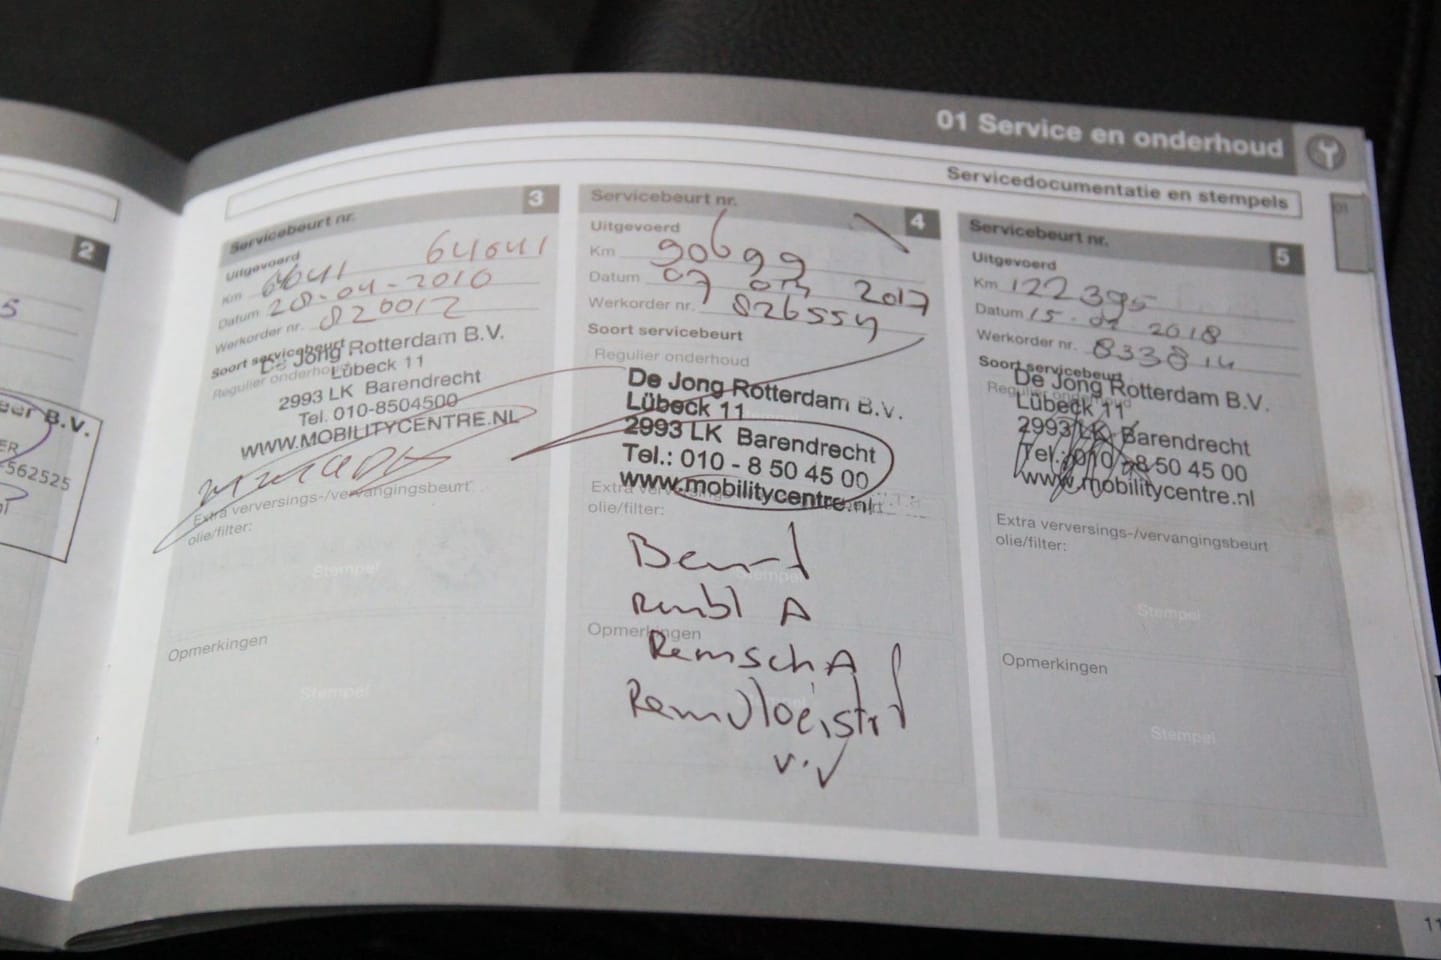 01 Service en onderhoud
Servicedocumentatie en stempels
2
5
eer B.V.
ER
562525
Servicebeurt nr. 3
Uitgevoerd 64041
Km
Datum 28-04-2016
Werkorder nr. 820012
Soort servicebeurt
Regulier onderhoud
De Jong Rotterdam B.V.
Lübeck 11
2993 LK Barendrecht
Tel. 010-8504500
WWW.MOBILITYCENTRE.NL
Extra verversings-/vervangingsbeurt
olie/filter:
Stempel
Opmerkingen
Stempel
Servicebeurt nr. 4
Uitgevoerd
Km 90699
Datum 07 2017
Werkorder nr. 826554
Soort servicebeurt
Regulier onderhoud
De Jong Rotterdam B.V.
Lübeck 11
2993 LK Barendrecht
Tel.: 010 - 8 50 45 00
www.mobilitycentre.nl
Extra verversings-/vervangingsbeurt
olie/filter:
Beurt
Stempel
rembl A
Opmerkingen
Remsch A
Remvloeistof
v.v
Servicebeurt nr. 5
Uitgevoerd
Km 122395
Datum 15 2018
Werkorder nr. 833814
Soort servicebeurt
Regulier onderhoud
De Jong Rotterdam B.V.
Lübeck 11
2993 LK Barendrecht
Tel.: 010 - 8 50 45 00
www.mobilitycentre.nl
Extra verversings-/vervangingsbeurt
olie/filter:
Stempel
Opmerkingen
Stempel
01
11